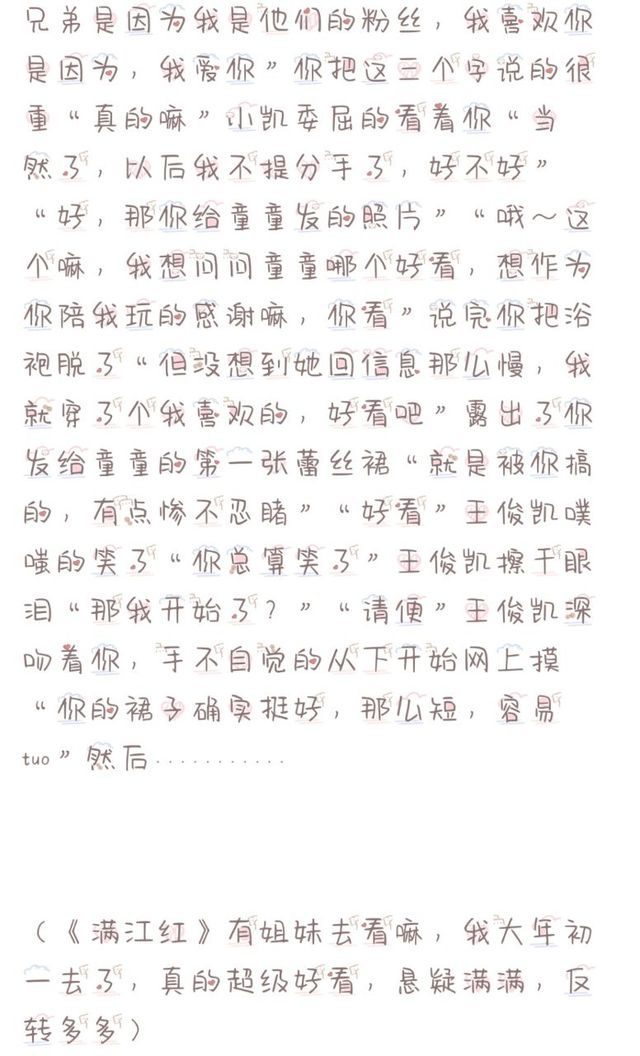 兄弟是因为我是他们的粉丝，我喜欢你
是因为，我爱你”你把这三个字说的很
重“真的嘛”小凯委屈的看着你“当
然了，以后我不提分手了，好不好”
“好，那你给童童发的照片”“哦～这
个嘛，我想问问童童哪个好看，想作为
你陪我玩的感谢嘛，你看”说完你把浴
袍脱了“但没想到她回信息那么慢，我
就穿了个我喜欢的，好看吧”露出了你
发给童童的第一张蕾丝裙“就是被你搞
的，有点惨不忍睹”“好看”王俊凯噗
嗤的笑了“你总算笑了”王俊凯擦干眼
泪“那我开始了？”“请便”王俊凯深
吻着你，手不自觉的从下开始网上摸
“你的裙子确实挺好，那么短，容易
tuo”然后············
（《满江红》有姐妹去看嘛，我大年初
一去了，真的超级好看，悬疑满满，反
转多多）